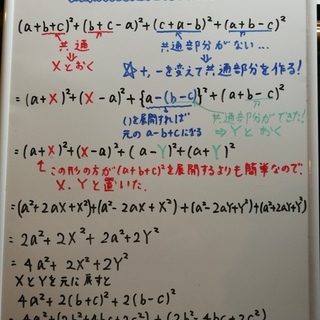 (a+b+c)²+(b+c-a)²+(c+a-b)²+(a+b-c)²
共通 共通部分がない...
Xとおく ☆+,-を変えて共通部分を作る!
=(a+X)²+(X-a)²+{a-(b-c)}²+(a+b-c)²
()を展開すれば 共通部分ができた!
元のa-b+cになる ⇒Yとおく
=(a+X)²+(X-a)²+(a-Y)²+(a+Y)²
この形の方が(a+b+c)²を展開するよりも簡単なので、
X、Yと置いた。
=(a²+2aX+X²)+(a²-2aX+X²)+(a²-2aY+Y²)+(a²+2aY+Y²)
=2a²+2X²+2a²+2Y²
=4a²+2X²+2Y²
XとYを元に戻すと
4a²+2(b+c)²+2(b-c)²